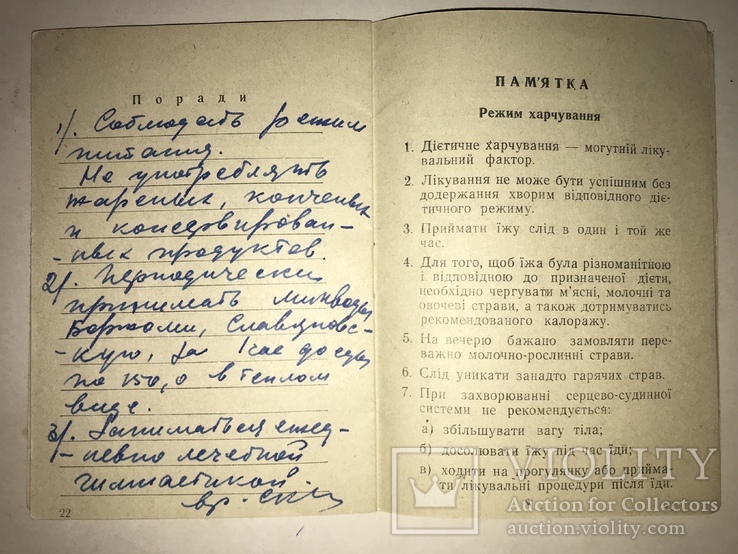 Поради
1). Соблюдать режим
питания.
Не употреблять
жареных, копченых
и консервирован-
-ных продуктов.
2). Периодически
принимать минводы
Боржоми, Славяновс-
-кую, за 1 час до еды
по 150,0 в теплом
виде.
3). Заниматься ежед-
-невно лечебной
гимнастикой.
вр.
22
ПАМ'ЯТКА
Режим харчування
1. Дієтичне харчування — могутній ліку-
вальний фактор.
2. Лікування не може бути успішним без
додержання хворим відповідного діє-
тичного режиму.
3. Приймати їжу слід в один і той же
час.
4. Для того, щоб їжа була різноманітною
і відповідною до призначеної дієти,
необхідно чергувати м'ясні, молочні та
овочеві страви, а також дотримуватись
рекомендованого калоражу.
5. На вечерю бажано замовляти пере-
важно молочно-рослинні страви.
6. Слід уникати занадто гарячих страв.
7. При захворюванні серцево-судинної
системи не рекомендується:
а) збільшувати вагу тіла;
б) досолювати їжу під час їди;
в) ходити на прогулянку або прийма-
ти лікувальні процедури після їди.
VIOLITY
Auction for Collectors
auction.violity.com